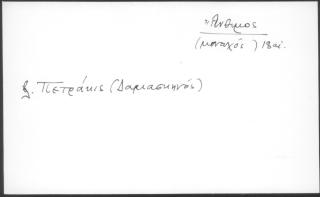 Ἄνθιμος
(μοναχός) 18 αἰ.
β. Πετράκις (Δαμασκηνός)